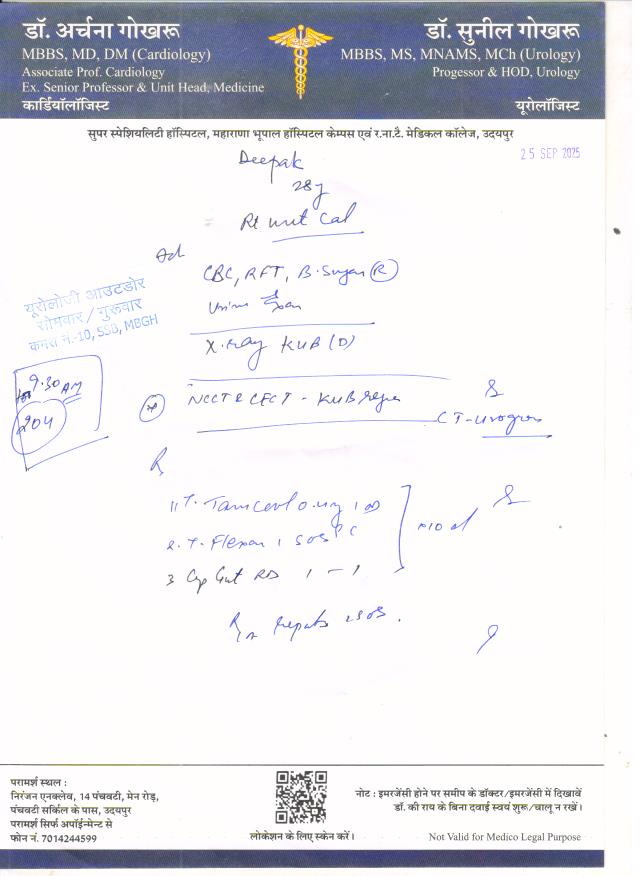 डॉ. अर्चना गोखरू
MBBS, MD, DM (Cardiology)
Associate Prof. Cardiology
Ex. Senior Professor & Unit Head, Medicine
कार्डियॉलॉजिस्ट
डॉ. सुनील गोखरू
MBBS, MS, MNAMS, MCh (Urology)
Progessor & HOD, Urology
यूरोलॉजिस्ट
सुपर स्पेशियलिटी हॉस्पिटल, महाराणा भूपाल हॉस्पिटल केम्पस एवं र.ना.टै. मेडिकल कॉलेज, उदयपुर
25 SEP 2025
Deepak
28y
Rt Cal
Ad
CBC, RFT, B. Sugar (R)
Urine
X-ray KUB (D)
NCCT & CECT - KUB
CT-Urogram
यूरोलोजी आउटडोर
सोमवार / गुरूवार
कमरा नं.-10, SSB, MBGH
9.30 AM
204
R
1) T.
2. T. Flexon 1 SOS PC
3 Cap Gut 1 - 1
SOS.
परामर्श स्थल :
निरंजन एनक्लेव, 14 पंचवटी, मेन रोड़,
पंचवटी सर्किल के पास, उदयपुर
परामर्श सिर्फ अपॉईन्मेन्ट से
फोन नं. 7014244599
लोकेशन के लिए स्केन करें।
नोट : इमरजेंसी होने पर समीप के डॉक्टर/इमरजेंसी में दिखावें
डॉ. की राय के बिना दवाई स्वयं शुरू/चालू न रखें।
Not Valid for Medico Legal Purpose